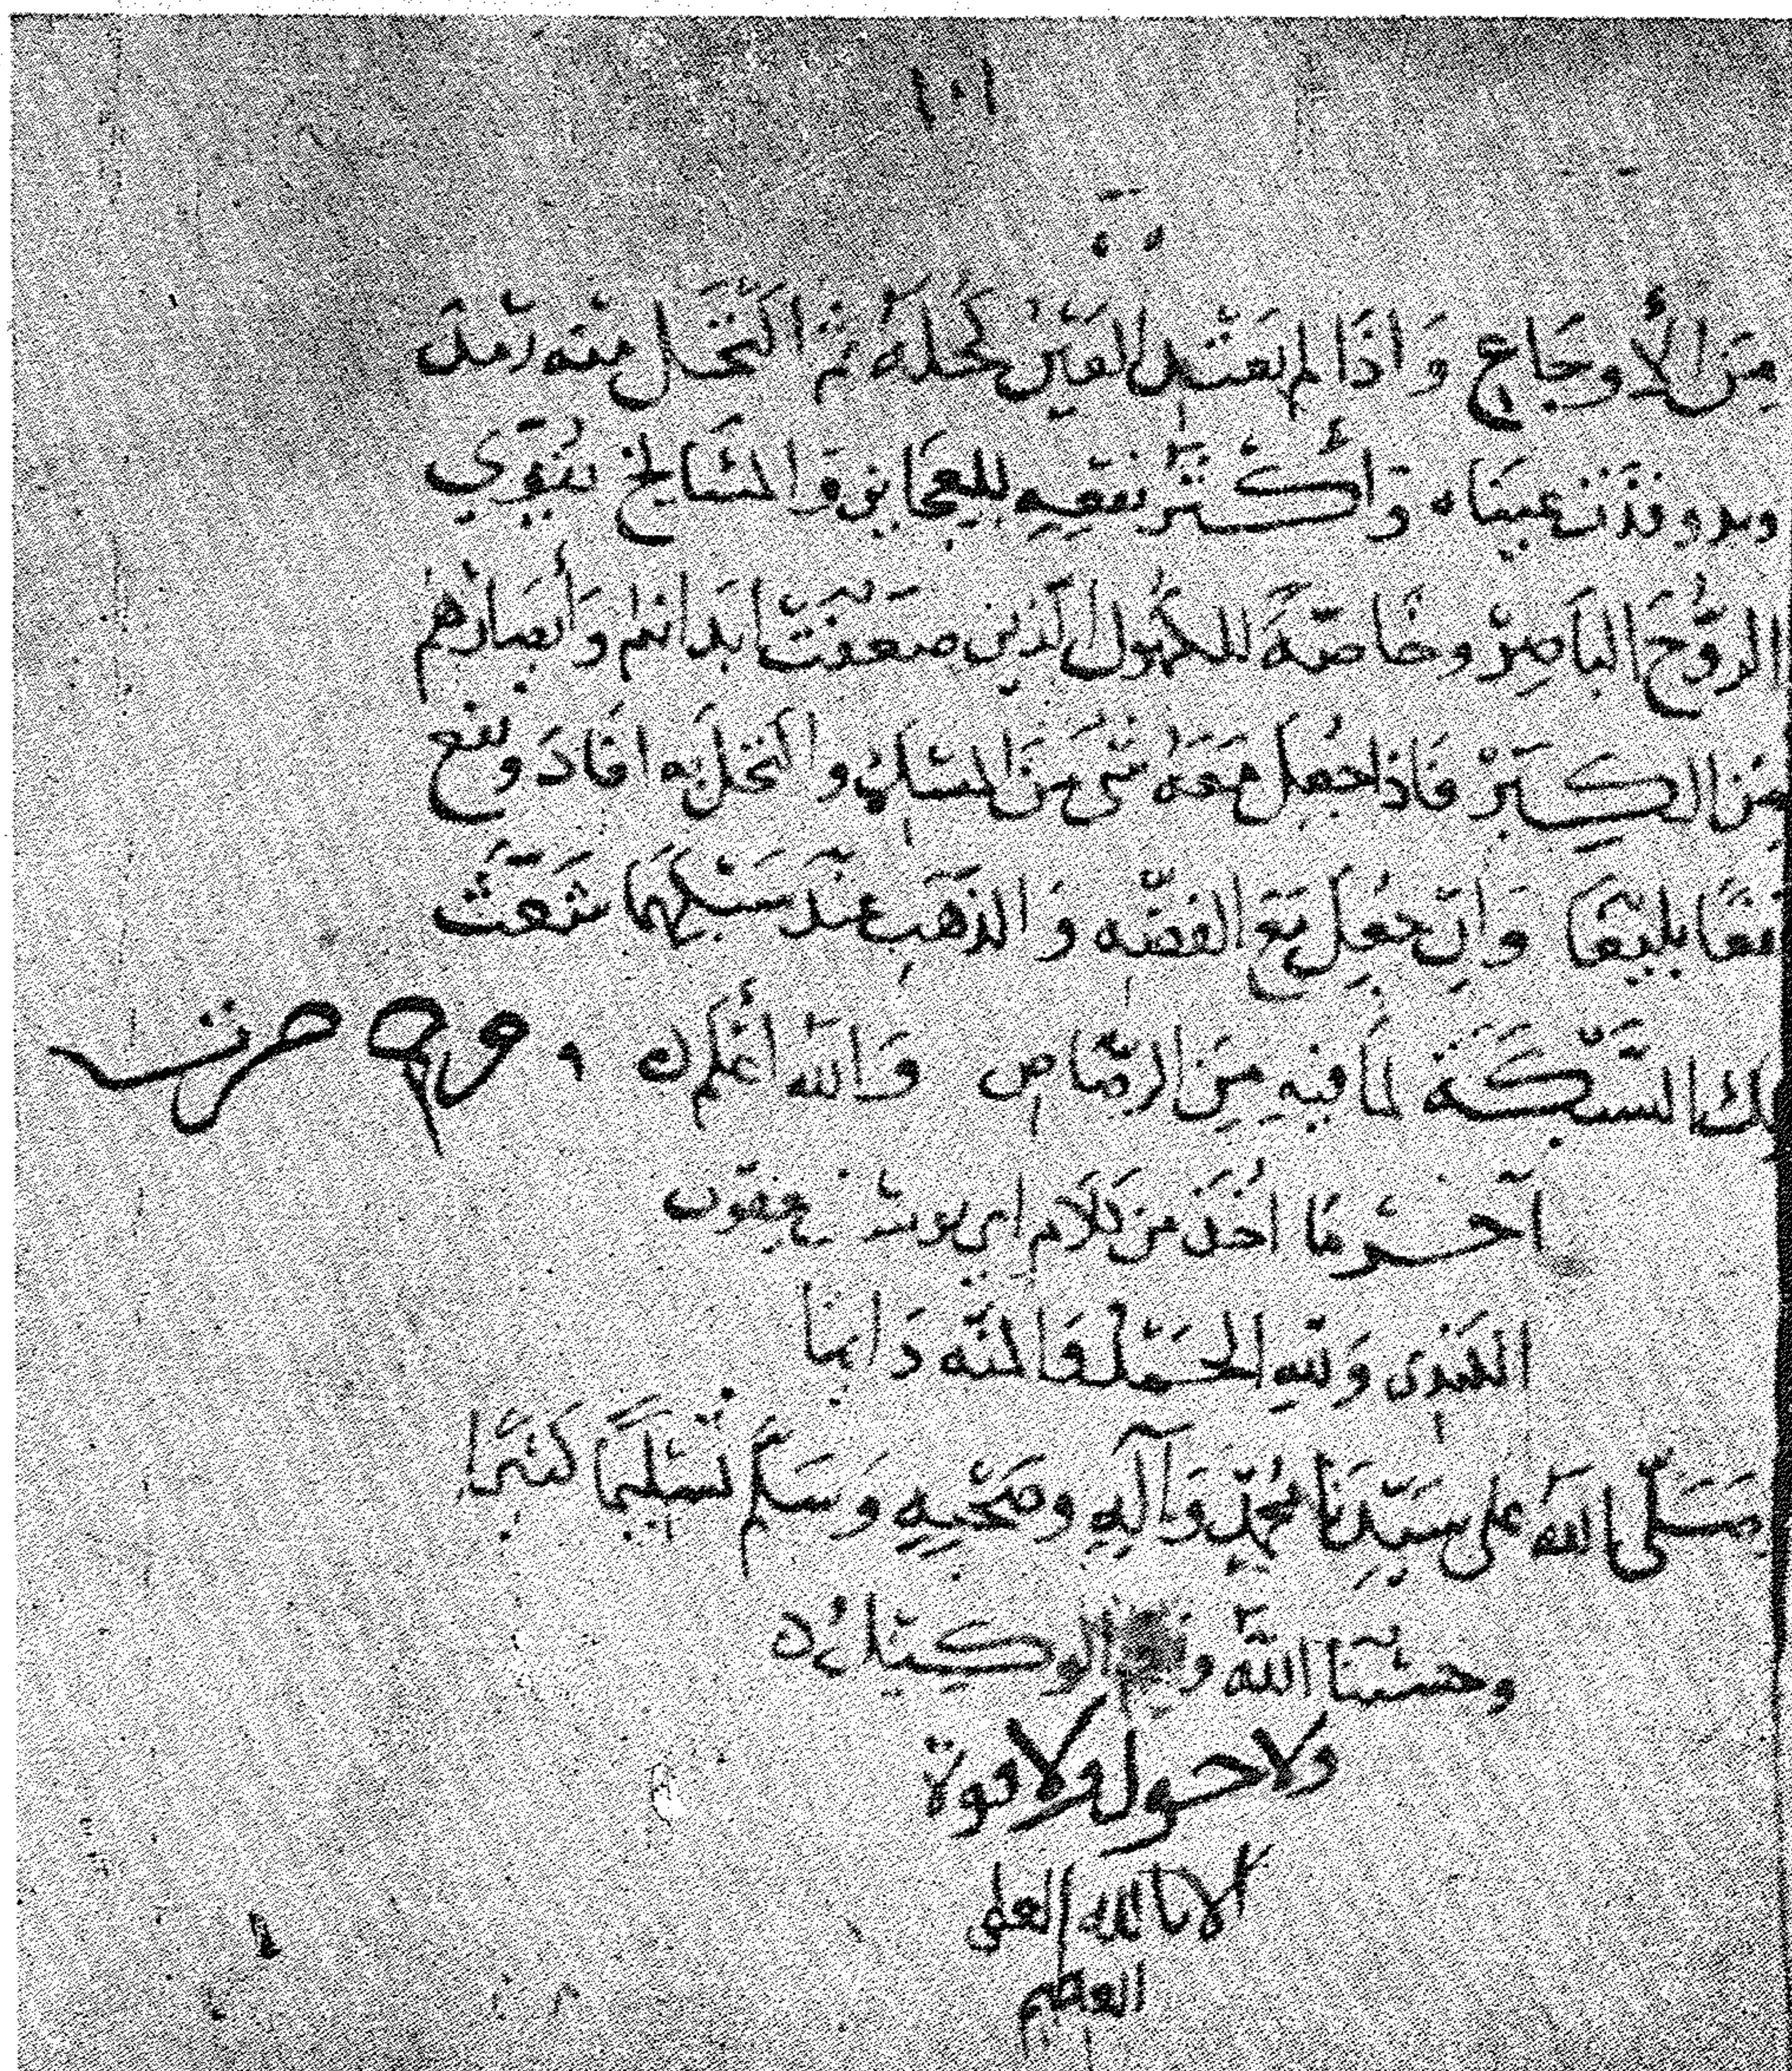 ١٠١
مِنَ الأَوجَاعِ وَاذَا لم تعتد العَيْن كُحلَهُ ثمَّ اكتَحَل منه رَمدَ
وَأكثَرُ نفعِه للعجَايز وَالمشَايخ يُقوّي
الرّوُحَ البَاصِرْ وخَاصّةً للكهُول الّذين ضَعفَتْ ابدَانهم وَأبْصَارُهُم
مِنَ الكِبَرْ فَاذا جُعِلَ مَعَهُ شَىْ مِنَ المسْك واكتحلَ به افَادَ ونفع
نفعًا بليْغًا وَان جُعِلَ مَعَ الفضّه وَالذهَب عندَ سَبْكهمَا شَعّثَ
تلك السّبكَه لما فيهِ مِنَ الرّصَاص وَاللهُ أعْلَم
آخر مَا أُخِذَ من كلام ابى يوسف يعقوب
الكندى وَللهِ الحَمْدُ وَالمنّه دَايمًا
وصَلّى اللهُ على سَيّدِنَا محمّدٍ وَآلِهِ وصَحْبِهِ وَسَلّم تَسْليمًا كثيرًا
وحسْبنَا اللهُ ونعم الوكيْلُ
ولا حول ولا قوة
الا بالله العلى
العظيم